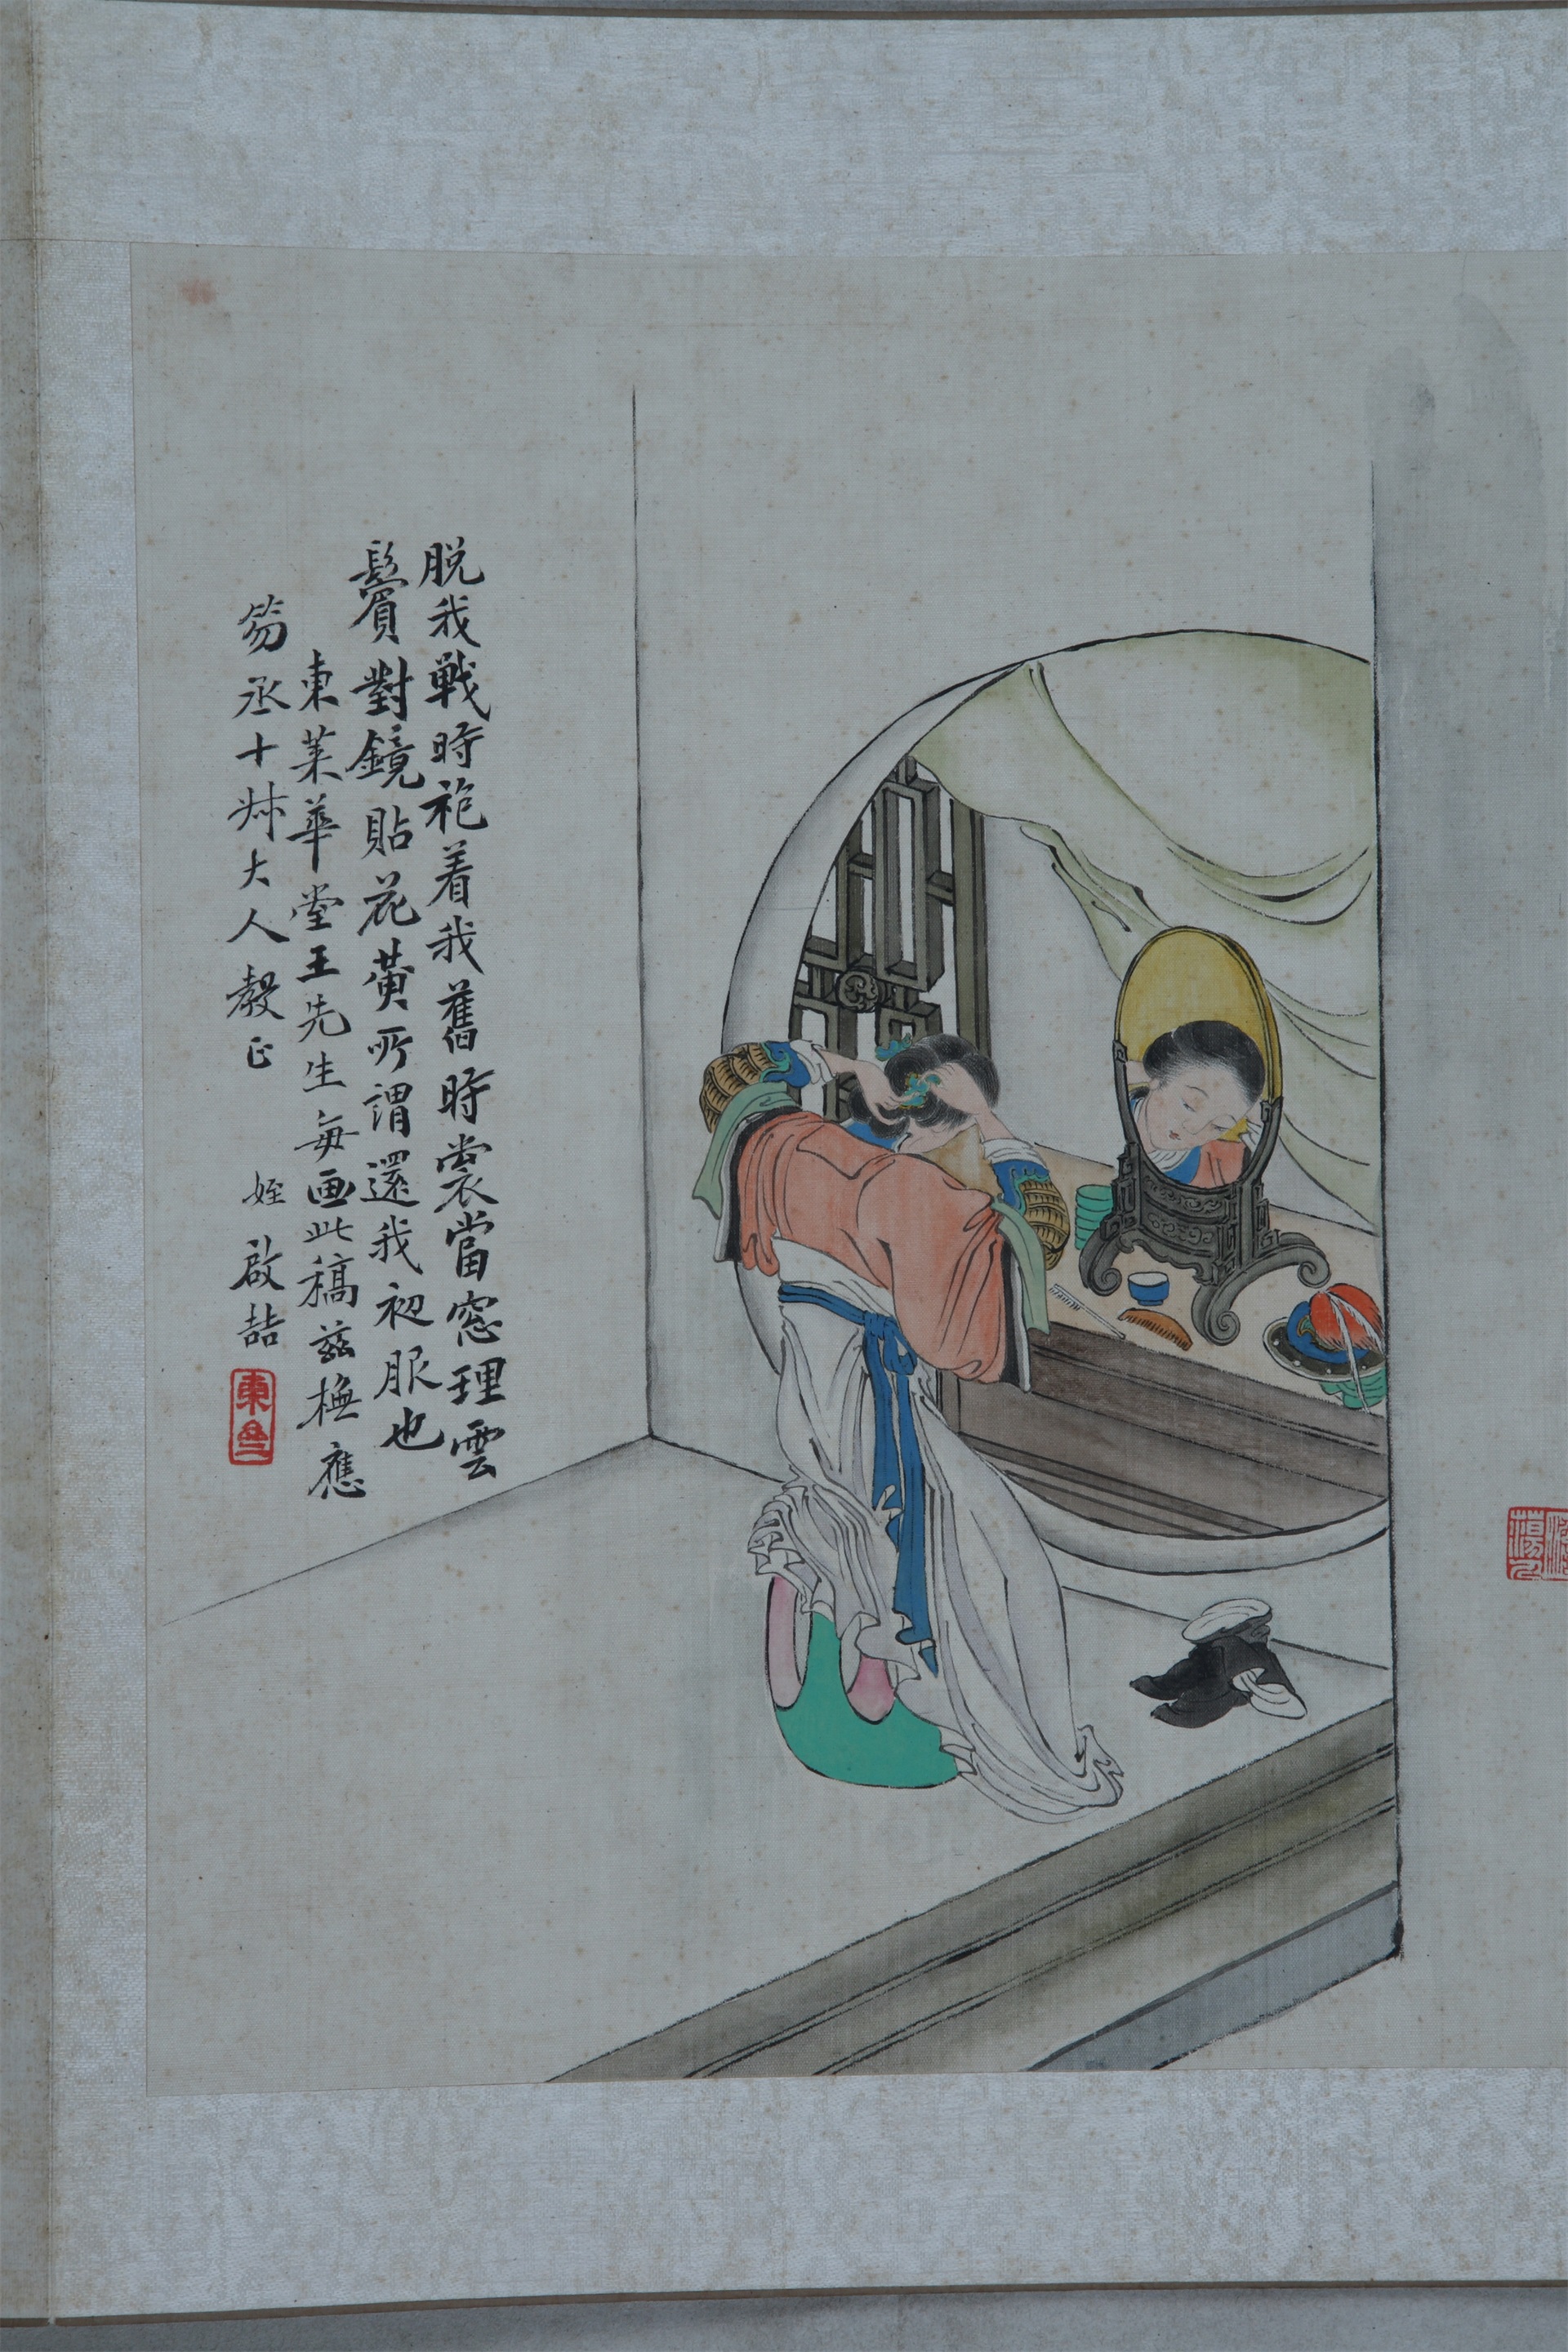 脱我戰時袍着我舊時裳當窓理雲
鬢對鏡貼花黄所謂還我初服也
東萊華堂王先生每画此稿茲橅應
笏丞十叔大人教正
姪啟喆